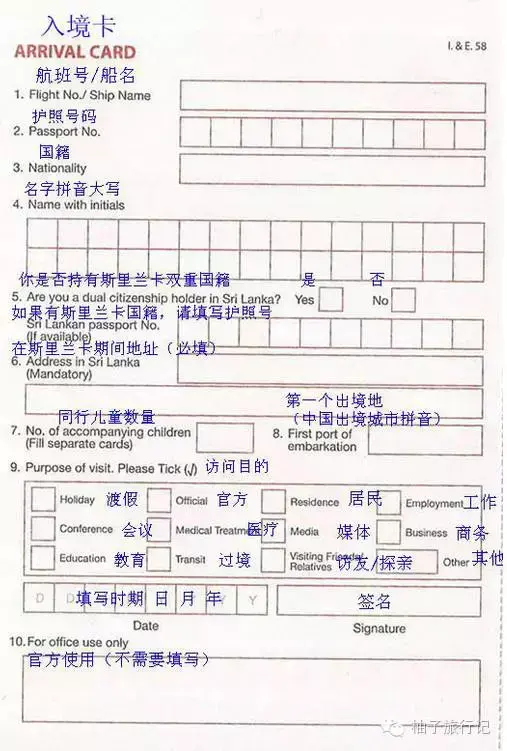 入境卡
ARRIVAL CARD
I. & E. 58
航班号/船名
1. Flight No./ Ship Name
护照号码
2. Passport No.
国籍
3. Nationality
名字拼音大写
4. Name with initials
你是否持有斯里兰卡双重国籍 是 否
5. Are you a dual citizenship holder in Sri Lanka? Yes No
如果有斯里兰卡国籍，请填写护照号
Sri Lankan passport No.
(If available)
在斯里兰卡期间地址（必填）
6. Address in Sri Lanka
(Mandatory)
第一个出境地
同行儿童数量 （中国出境城市拼音）
7. No. of accompanying children 8. First port of
(Fill separate cards) embarkation
9. Purpose of visit. Please Tick (√) 访问目的
Holiday 渡假 Official 官方 Residence 居民 Employment 工作
Conference 会议 Medical Treatment 医疗 Media 媒体 Business 商务
Education 教育 Transit 过境 Visiting Friends/ Relatives 访友/探亲 Other 其他
D D 填写时期 日 月 年 Y Y 签名
Date Signature
10.For office use only
官方使用（不需要填写）
柚子旅行记